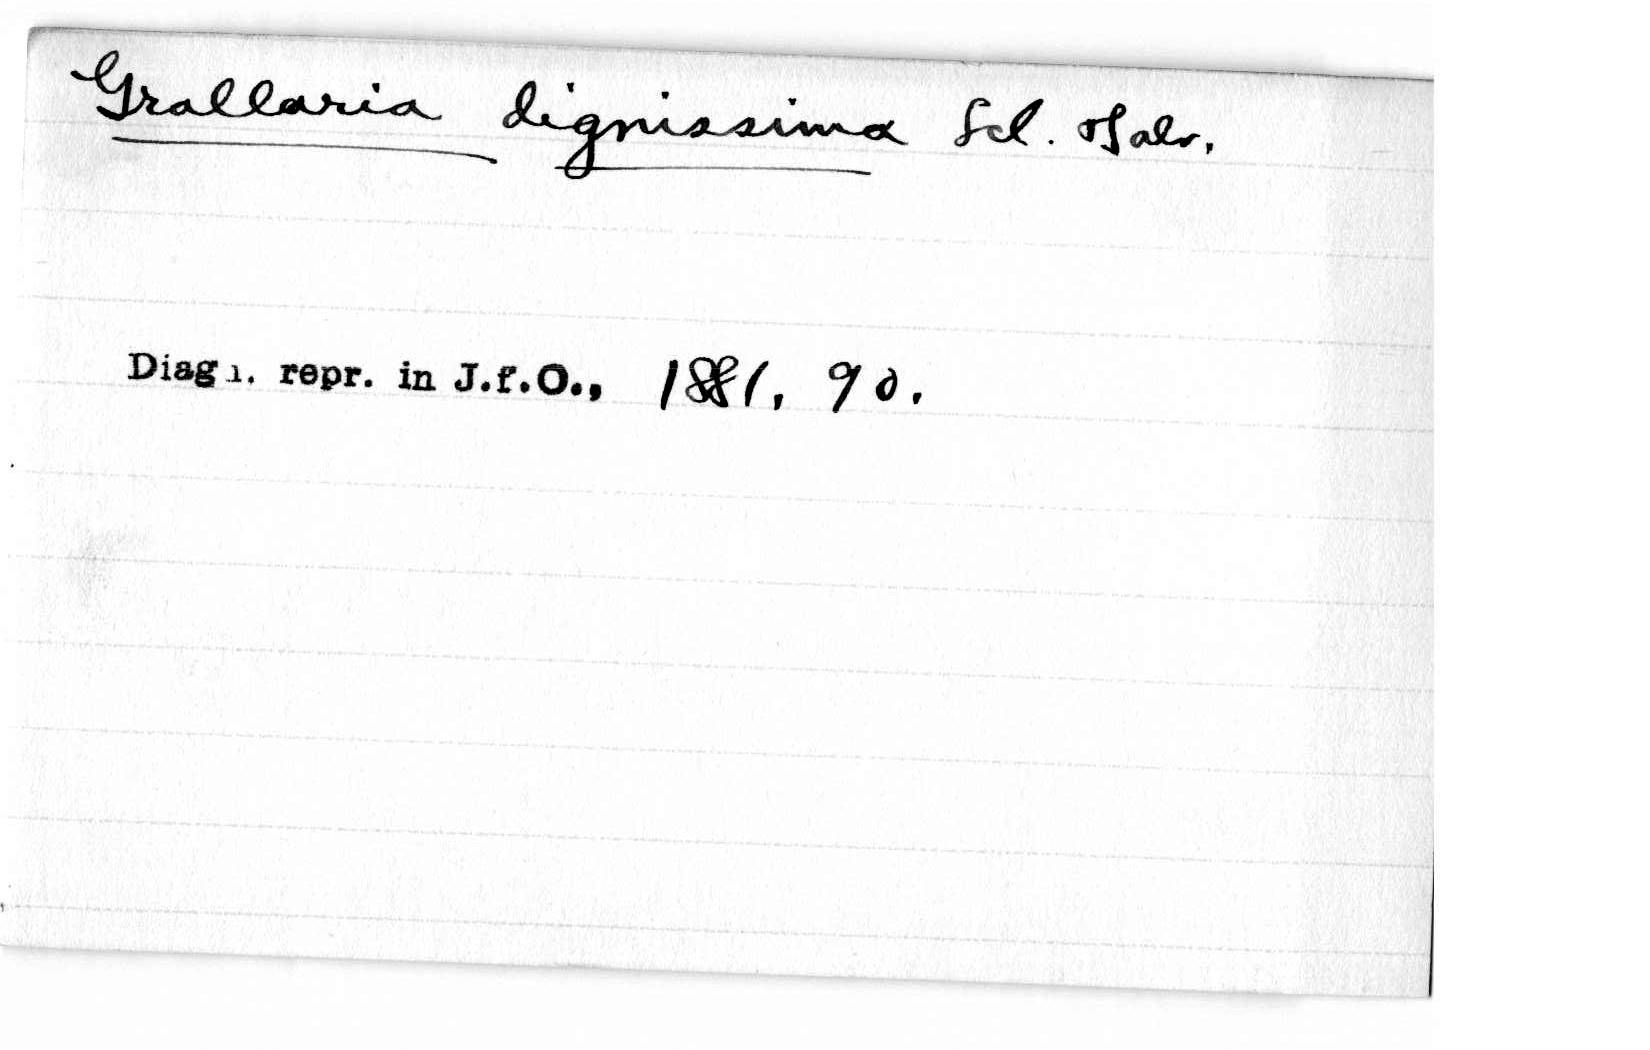 Grallaria dignissima Scl. & Salv.
Diagn. repr. in J.f.O., 1881, 90.